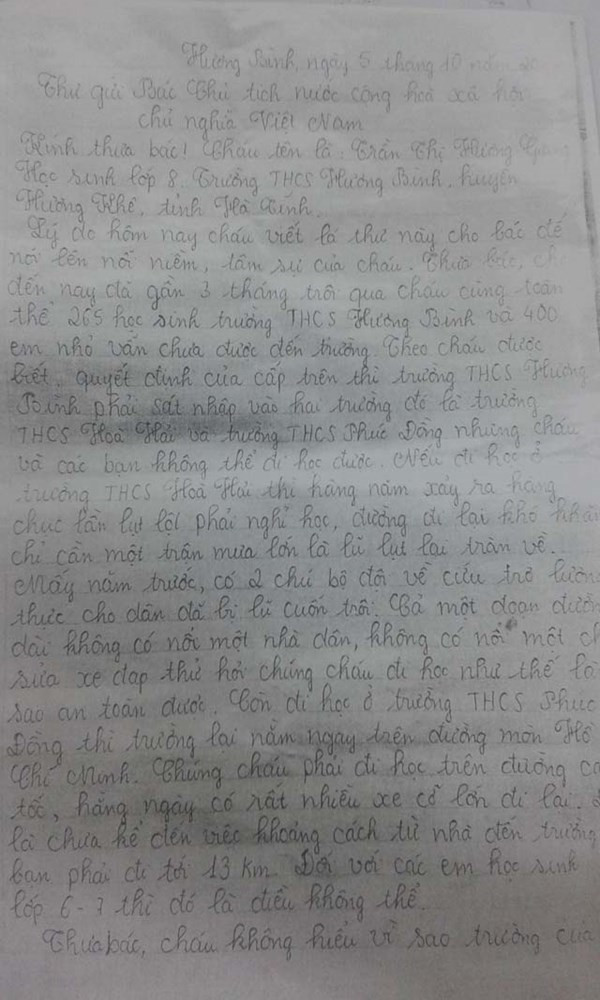 Hương Bình, ngày 5 tháng 10 năm 20
Thư gửi Bác Chủ tịch nước cộng hoà xã hội
chủ nghĩa Việt Nam
Kính thưa bác! Cháu tên là: Trần Thị Hương Giang
Học sinh lớp 8. Trường THCS Hương Bình, huyện
Hương Khê, tỉnh Hà Tĩnh.
Lý do hôm nay cháu viết lá thư này cho bác để
nói lên nỗi niềm, tâm sự của cháu. Thưa bác, ch
đến nay đã gần 3 tháng trôi qua cháu cùng toàn
thể 265 học sinh trường THCS Hương Bình và 400
em nhỏ vẫn chưa được đến trường. Theo cháu được
biết, quyết định của cấp trên thì trường THCS Hương
Bình phải sát nhập vào hai trường đó là trường
THCS Hoà Hải và trường THCS Phúc Đồng nhưng cháu
và các bạn không thể đi học được. Nếu đi học ở
trường THCS Hoà Hải thì hàng năm xảy ra hàng
chục lần lụt lội phải nghỉ học, đường đi lại khó khăn
chỉ cần một trận mưa lớn là lũ lụt lại tràn về.
Mấy năm trước, có 2 chú bộ đội về cứu trợ lương
thực cho dân đã bị lũ cuốn trôi. Cả một đoạn đường
dài không có nổi một nhà dân, không có nổi một ch
sửa xe đạp thử hỏi chúng cháu đi học như thế là
sao an toàn được. Còn đi học ở trường THCS Phúc
Đồng thì trường lại nằm ngay trên đường mòn Hồ
Chí Minh. Chúng cháu phải đi học trên đường ca
tốc, hàng ngày có rất nhiều xe cộ lớn đi lại.
là chưa kể đến việc khoảng cách từ nhà đến trường
bạn phải đi tới 13 km. Đối với các em học sinh
lớp 6-7 thì đó là điều không thể.
Thưa bác, cháu không hiểu vì sao trường của